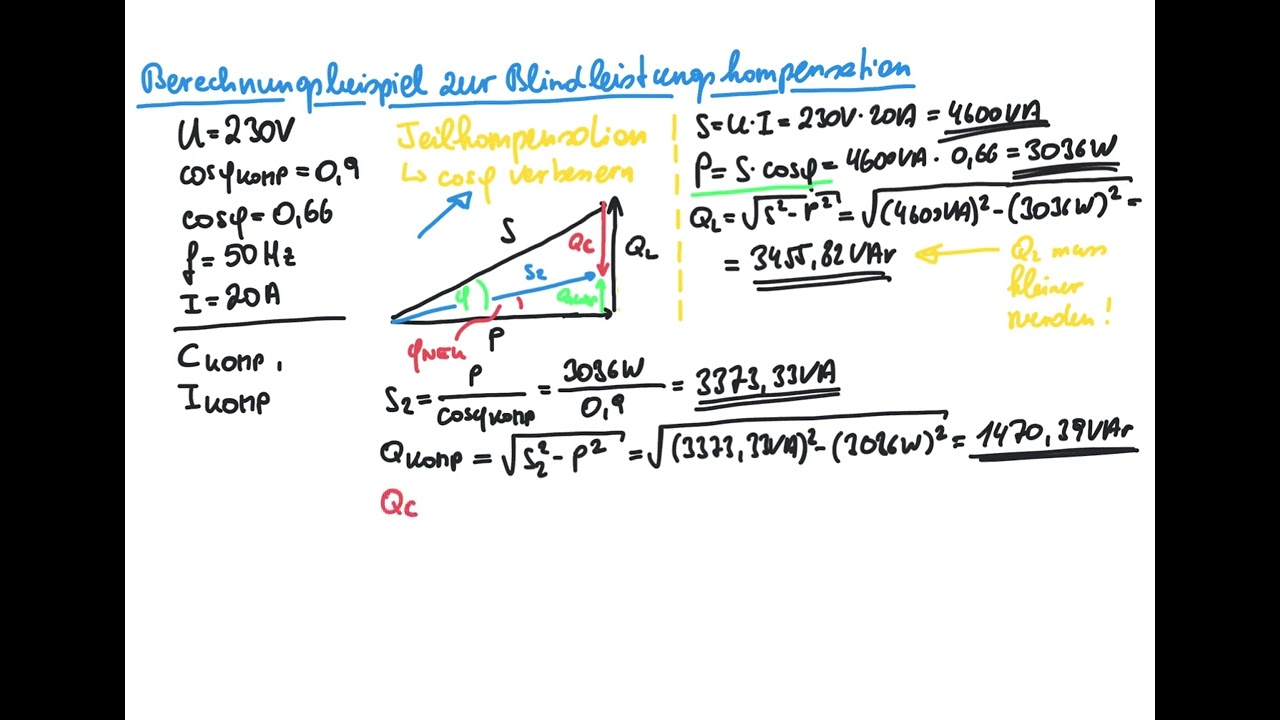 Berechnungsbeispiel zur Blindleistungskompensation
U = 230V
cosφKOMP = 0,9
cosφ = 0,66
f = 50 Hz
I = 20A
CKOMP,
IKOMP
Teilkompensation
↳ cosφ verbessern
S
QC
QL
S2
φ
QKOMP
φNEU
P
S = U · I = 230V · 20A = 4600VA
P = S · cosφ = 4600VA · 0,66 = 3036W
QL = √(S² - P²) = √((4600VA)² - (3036W)²) =
= 3455,82 VAr ← QL muss
kleiner
werden!
S2 = P / cosφKOMP = 3036W / 0,9 = 3373,33VA
QKOMP = √(S2² - P²) = √((3373,33VA)² - (3036W)²) = 1470,39VAr
QC